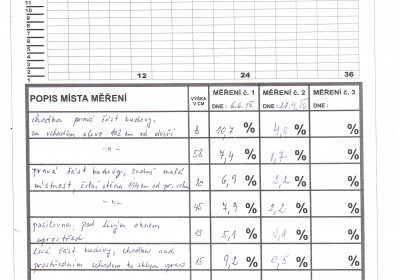 11
10
9
8
7
6
5
4
3
2
1
12 24 36
POPIS MÍSTA MĚŘENÍ VÝŠKA V CM MĚŘENÍ č. 1 MĚŘENÍ č. 2 MĚŘENÍ č. 3
DNE: DNE: DNE:
chodba pravá část budovy,
za vchodem vlevo 102 cm od dveří 8 10,7 % 4,0 % %
-"- 58 7,4 % 1,7 % %
pravá část budovy, zadní malá
místnost, čelní stěna od 6,9 % 3,2 % %
-"- 45 7,9 % 2,2 % %
posilovna, pod levým oknem
uprostřed 5,1 % 0,8 % %
levá část budovy, chodba nad
prostředním schodem ke sklepu vpravo 15 9,2 % 0,5 % %